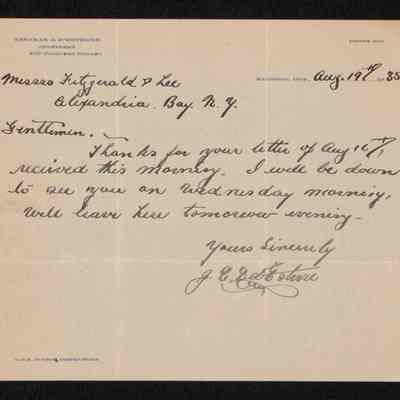 Messrs Fitzgerald & Lee
Aug. 19th 35
Alexandria Bay. N. Y.
Gentlemen.
Thanks for your letter of Aug 16th,
recived this morning. I will be down
to see you on Wednesday morning,
Will leave here tomorrow evening.
Yours Sincerely
J. E.